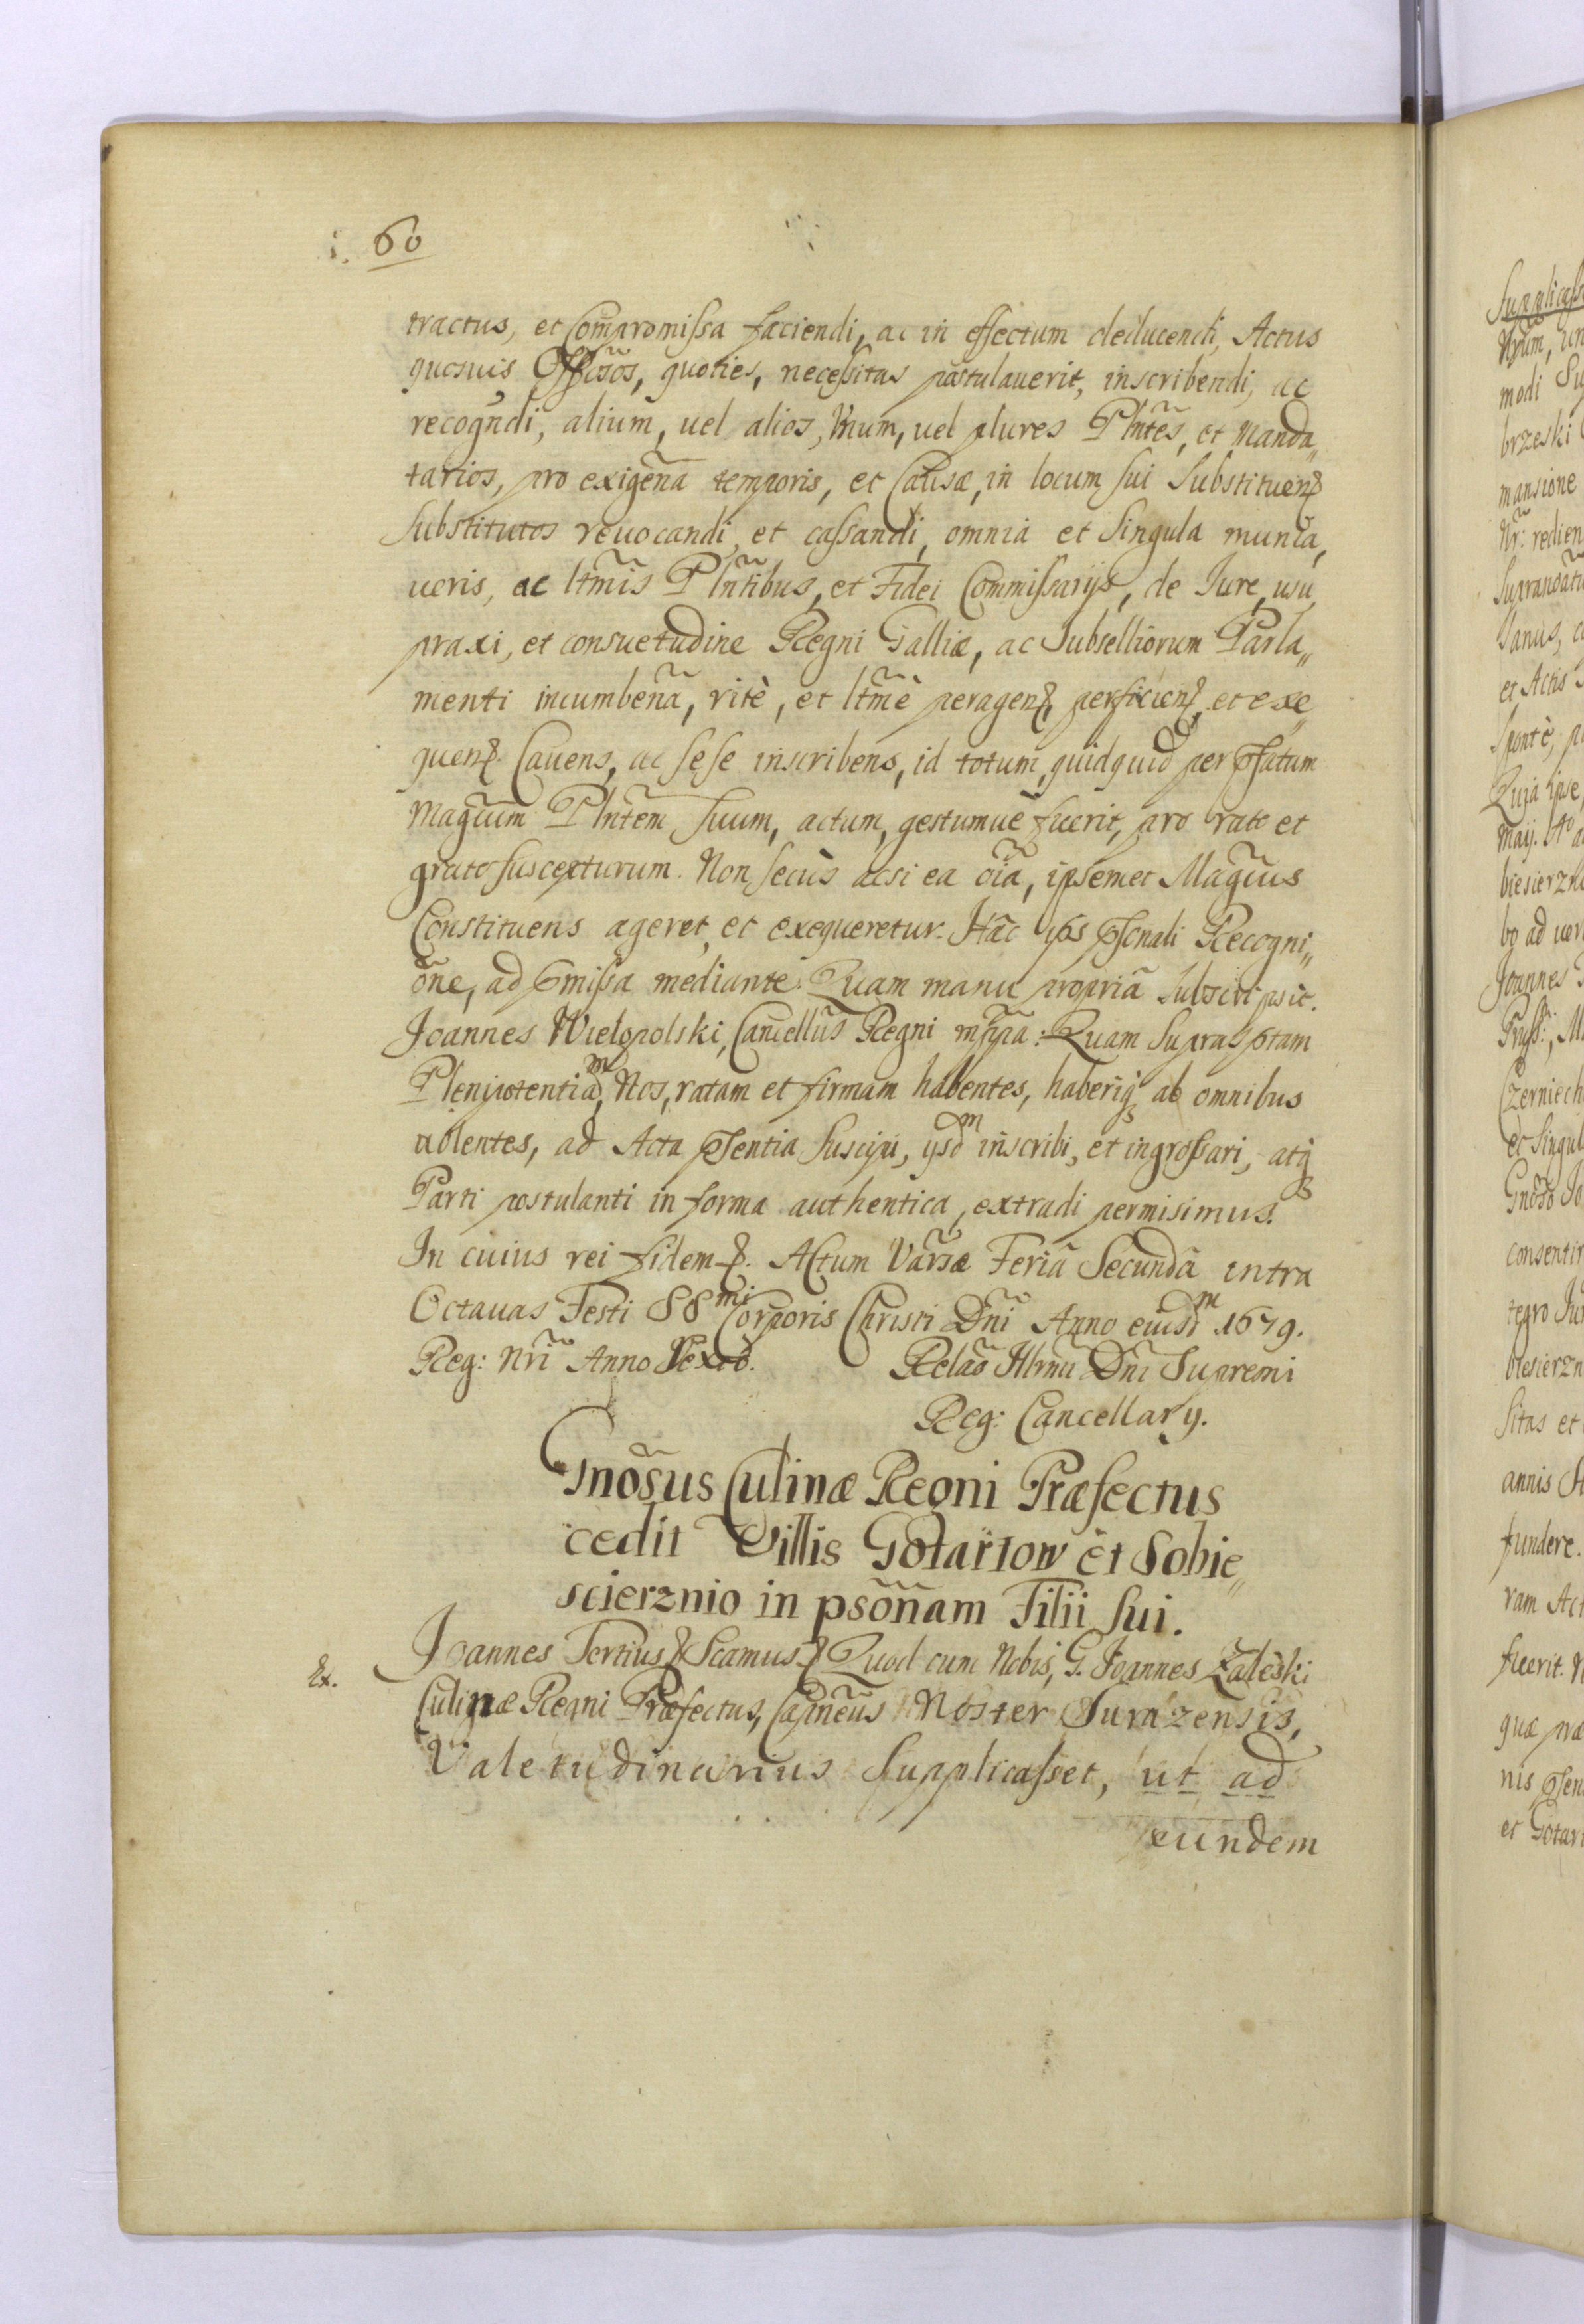 60
tractus, et Compromissa faciendi, ac in effectum deducendi, Actus
quosuis Officsos, quoties, necessitas postulauerit, inscribendi, ac
recogndi, alium, uel alios, Vnum, uel plures Plntes, et Manda„
tarios, pro exigena temporis, et Causæ, in locum sui Substituen
Substitutos reuocandi, et cassandi, omnia et Singula munia,
ueris, ac ltmis Plntibus, et Fidei Commissarijs, de Iure, usu,
praxi, et consuetudine Regni Galliæ, ac Subselliorum Parla„
menti incumbena, ritè, et ltmè peragen, perficien, et exe„
quen. Cauens, ac sese inscribens, id totum, quidquid per pfatum
Magcum Plntem suum, actum, gestumue fuerit, pro rato et
grato suscepturum. Non secùs acsi ea oia, ipsemet Magcus
Constituens ageret, et exequeretur. Hac ips psonali Recogni„
one, ad pmissa mediante. Quam manu propria Subscripsit.
Joannes Wielopolski, Cancellus Regni mppa: Quam suprasptam
Plenipotentiam, Nos, ratam et firmam habentes, haberiq ab omnibus
uolentes, ad Acta psentia suscipi, ijsdm inscribi, et ingrossari, atq
Parti postulanti in forma authentica, extradi permisimus.
In cuius rei fidem. Actum Varsæ Feria Secunda intra
Octauas Festi SSmi Corporis Christi Dni Anno eiusdm 1679.
Reg: Nri Anno Sexto. Relao Illmi Dni Supremi
Reg: Cancellarij.
Gnosus Culinæ Regni Præfectus
cedit Villis Gotartow et Sobie„
scierznio in psonam Filii sui.
Ex.
Joannes Tertius Scamus Quod cum Nobis, G. Joannes Zaleski
Culinæ Regni Præfectus, Capneus Noster Surazensis,
Valetudinarius supplicasset, ut ad
eundem